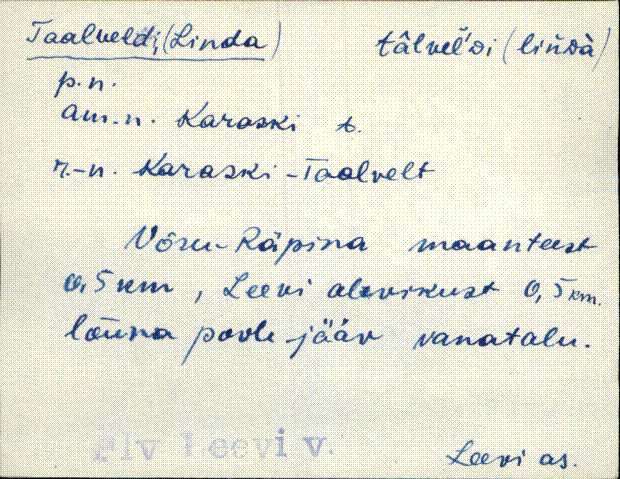 Taalveldi, (Linda) tâlvel̆'di (lin̆dà)
p.n.
am.-n. Karaski t.
r.-n. Karaski-Taalvelt
Võru-Räpina maanteest
0,5 km, Leevi alevikust 0,5 km.
lõuna poole jääv vanatalu.
Plv Leevi v.
Leevi as.